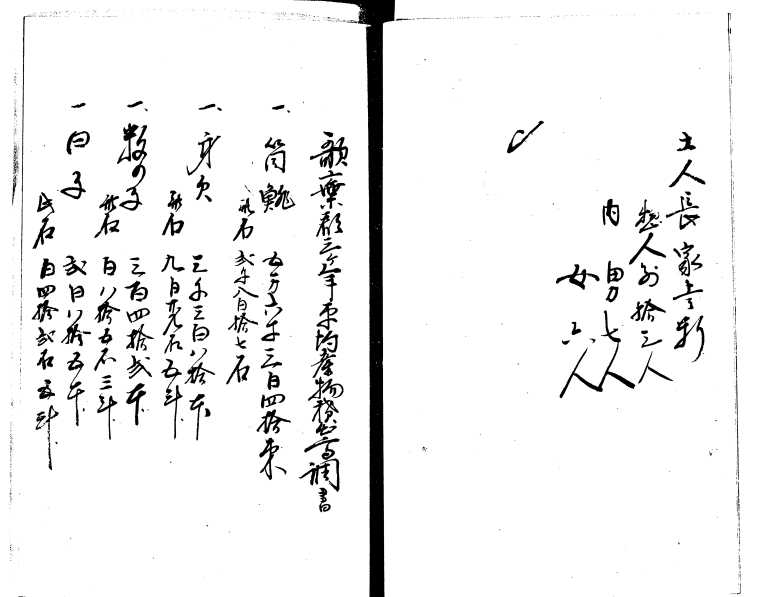 土人長家壱軒
惣人別拾三人
内男七人
女六人
歌棄郡三ヶ年平均産物積出高調書
一、筒鯡 五万六千三百四拾束
此石 弐千八百拾七石
一、身欠 三千三百八拾本
此石 九百九石五斗
一、数の子 三百四拾弐本
此石 百八拾五石三斗
一 白子 弐百八拾五本
此石 百四拾弐石五斗